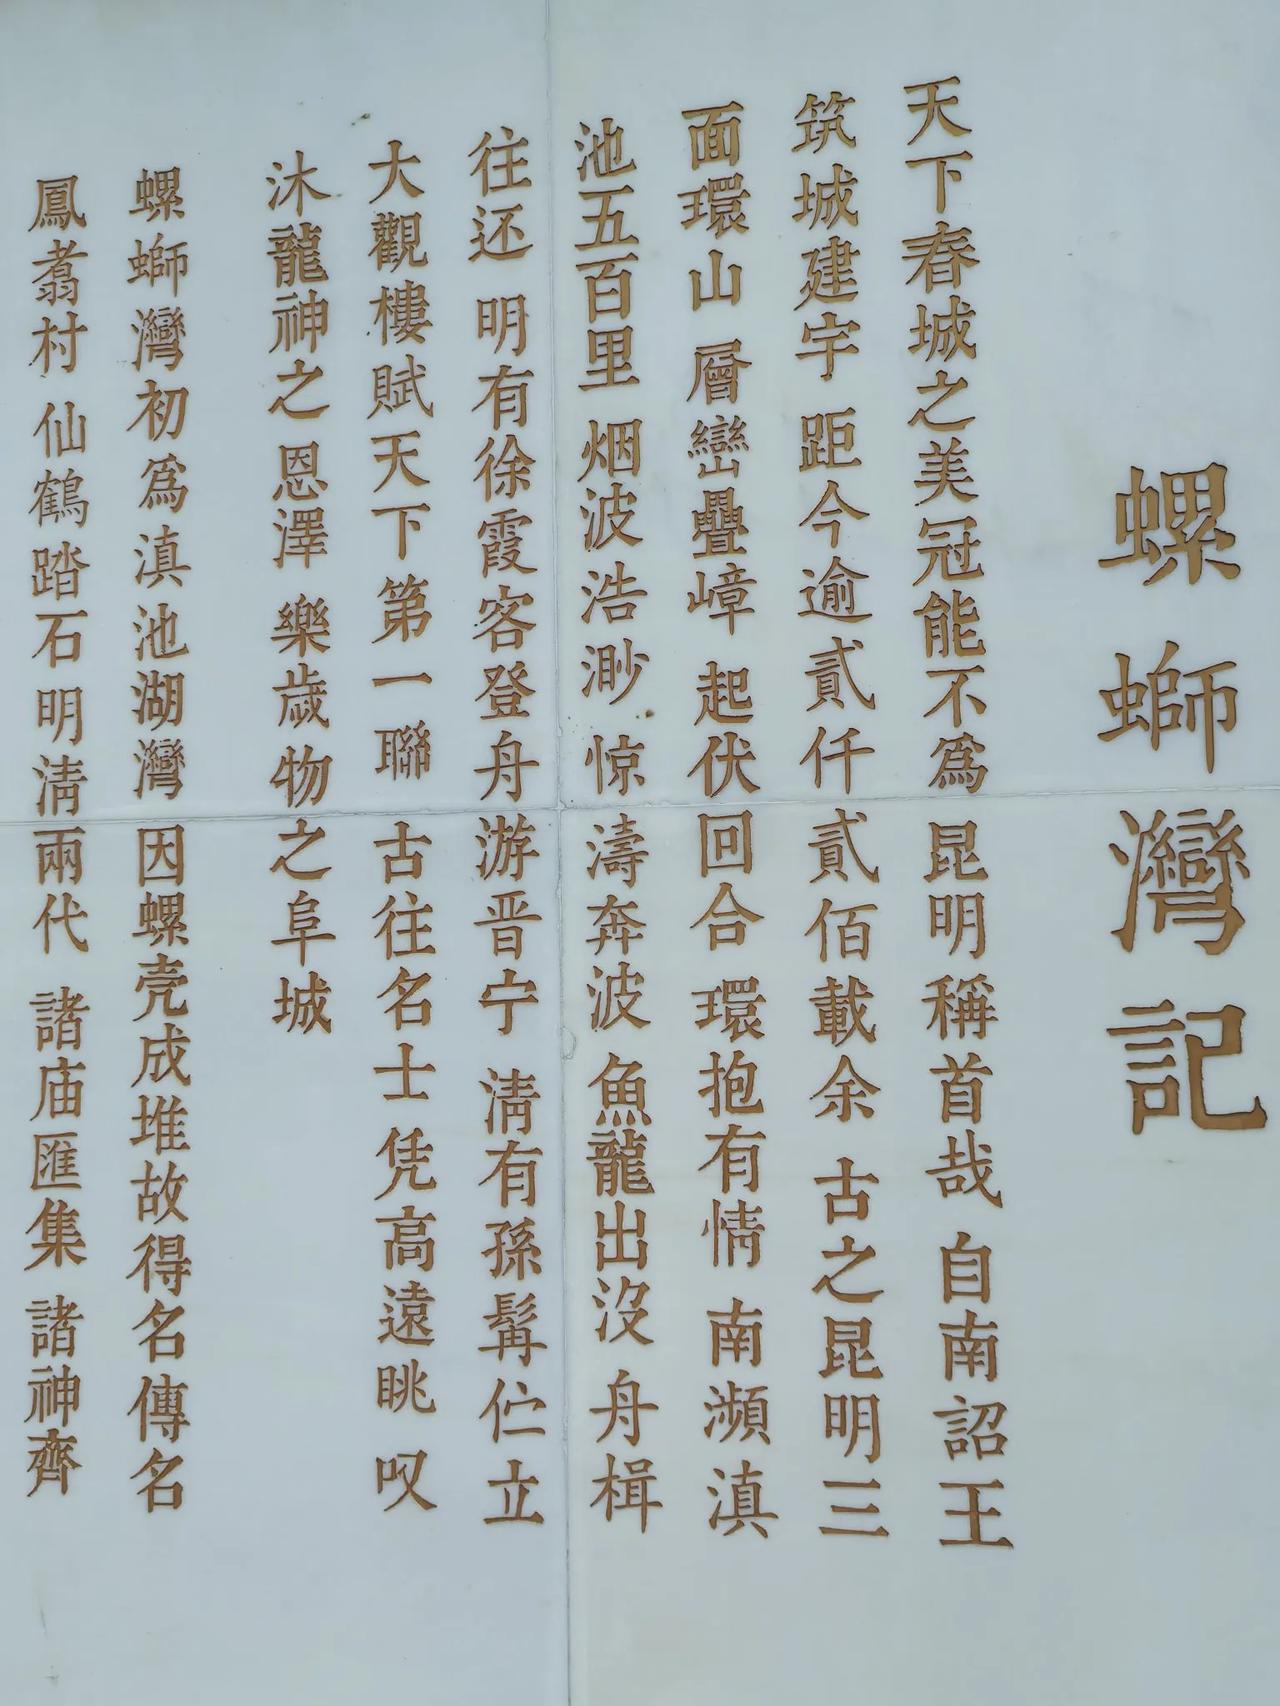 螺螄灣記
天下春城之美冠能不爲 昆明稱首哉 自南詔王
筑城建宇 距今逾貳仟貳佰載余 古之昆明三
面環山 層巒疊嶂 起伏回合 環抱有情 南瀕滇
池五百里 烟波浩渺 惊濤奔波 魚龍出沒 舟楫
往还 明有徐霞客登舟游晋宁 清有孫髯伫立
大觀樓賦天下第一聯 古往名士凭高遠眺 叹
沐龍神之恩澤 樂歲物之阜城
螺螄灣初爲滇池湖灣 因螺壳成堆故得名傳名
鳳翥村 仙鶴踏石 明清兩代 諸庙匯集 諸神齊